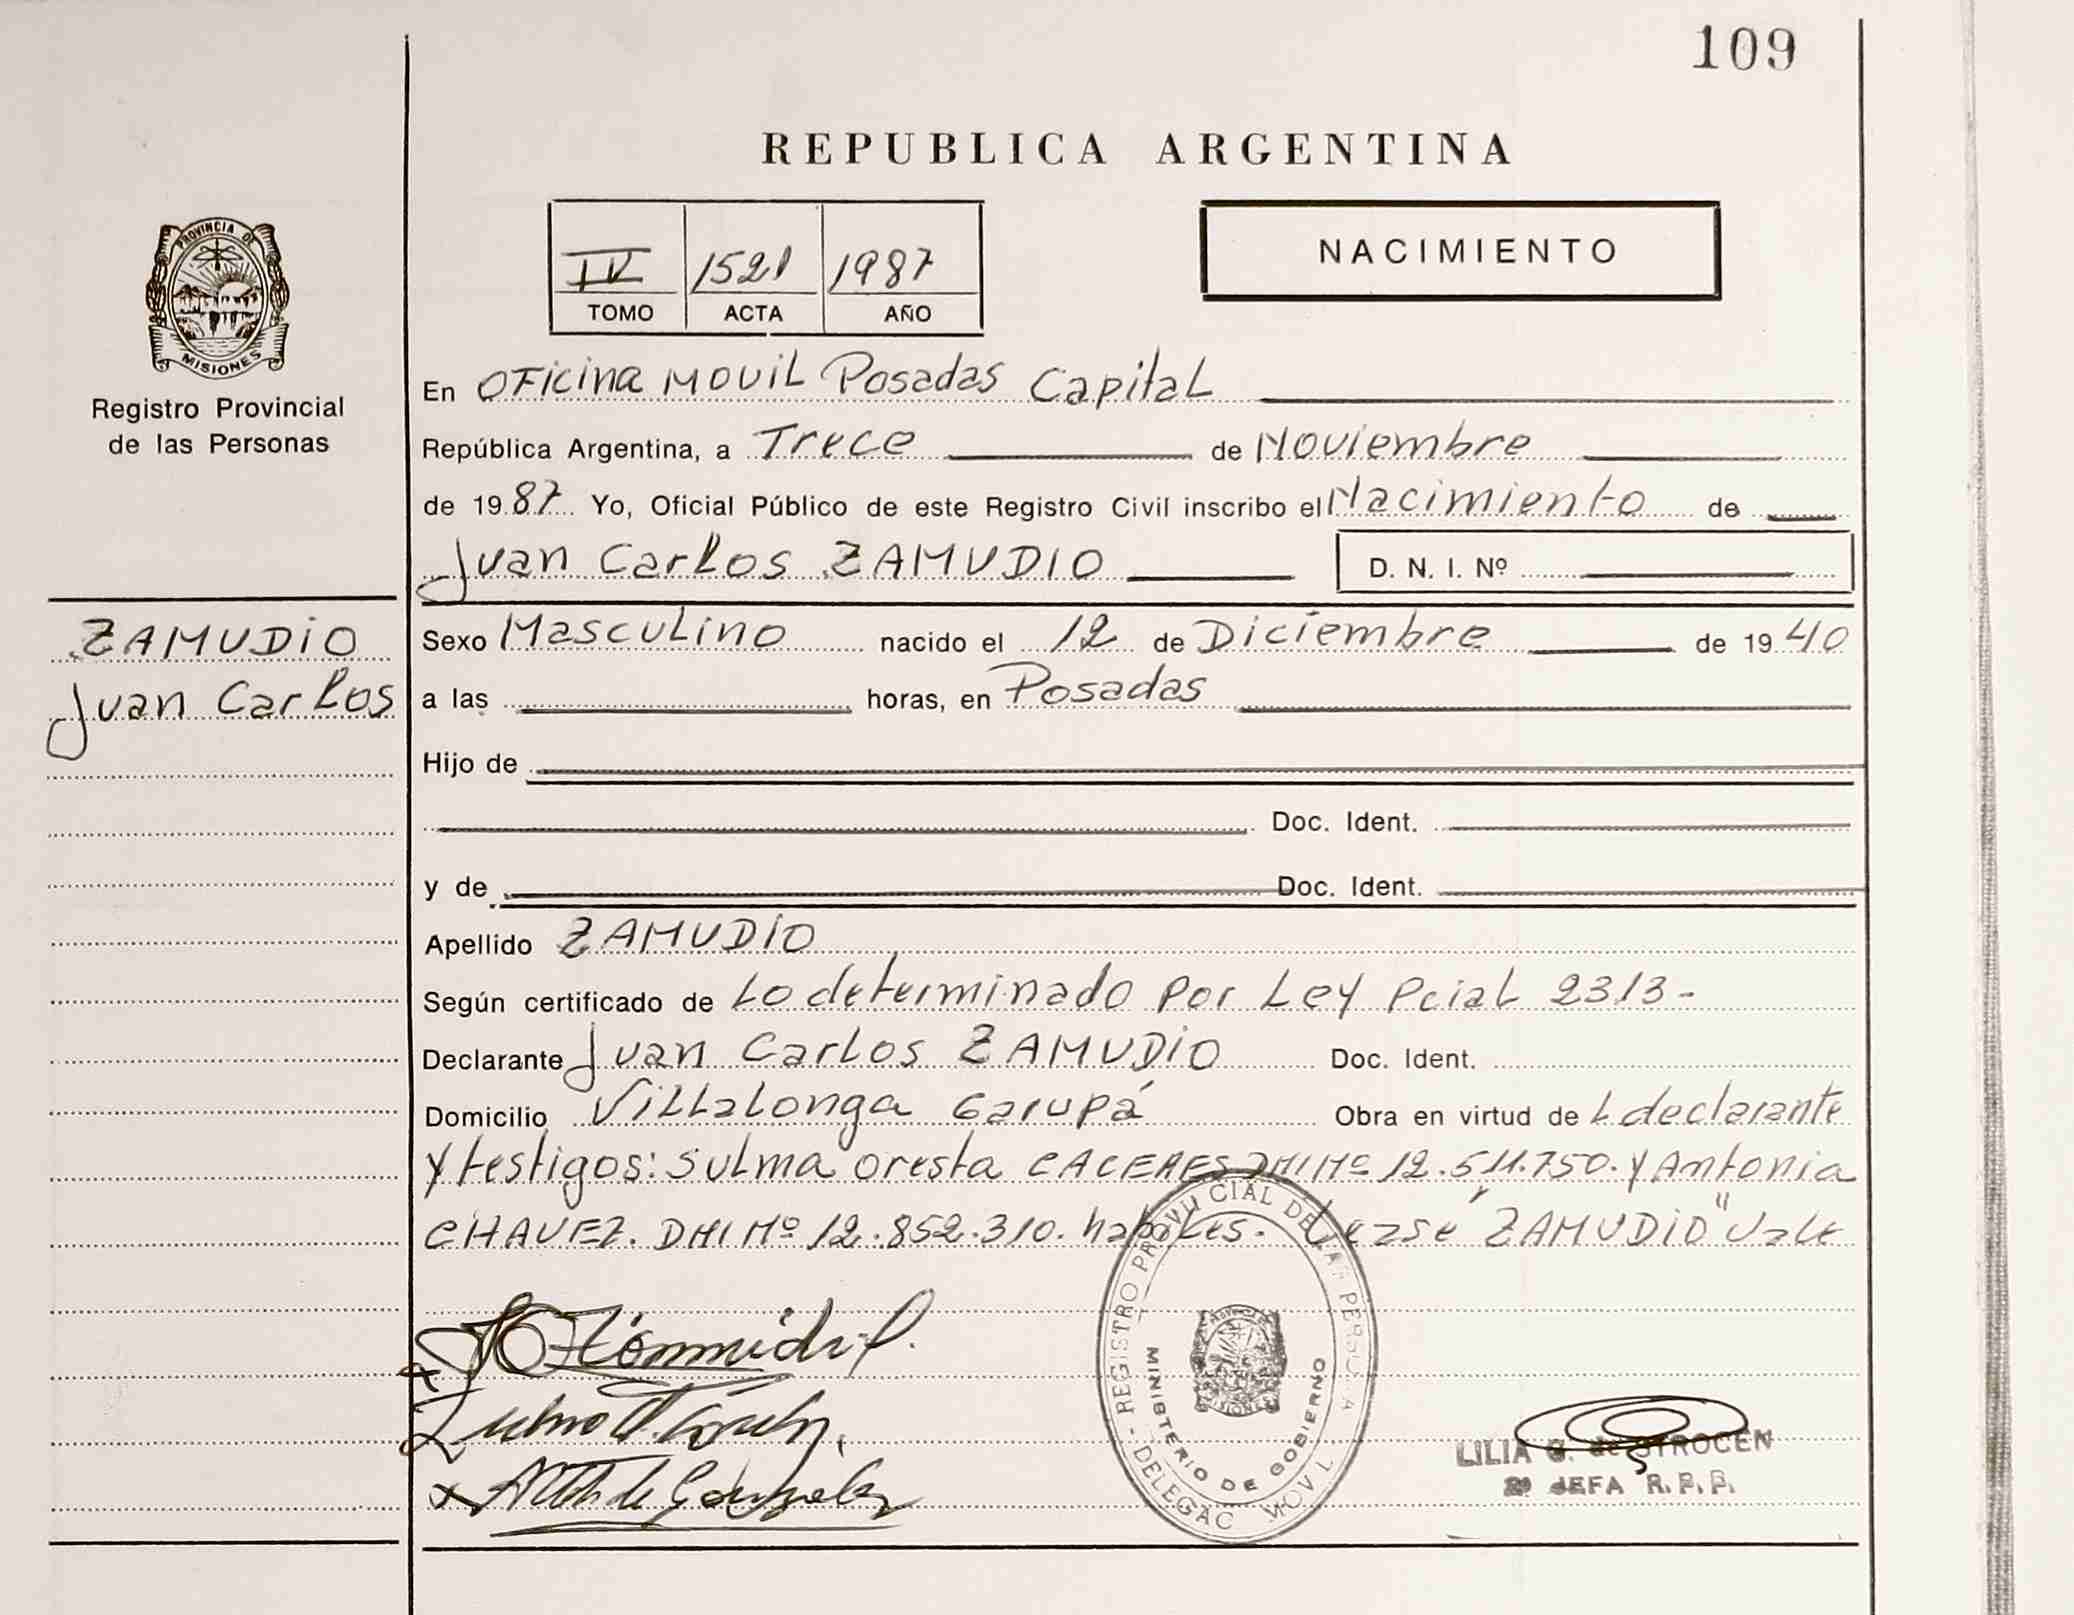 109
REPUBLICA ARGENTINA
IV 1521 1987
TOMO ACTA AÑO
NACIMIENTO
PROVINCIA DE
MISIONES
Registro Provincial
de las Personas
En Oficina Movil Posadas Capital
República Argentina, a Trece de Noviembre
de 1987 Yo, Oficial Público de este Registro Civil inscribo el Nacimiento de
Juan Carlos ZAMUDIO D. N. I. Nº
ZAMUDIO
Juan Carlos
Sexo Masculino nacido el 12 de Diciembre de 1940
a las horas, en Posadas
Hijo de
Doc. Ident.
y de Doc. Ident.
Apellido ZAMUDIO
Según certificado de Lo determinado por Ley Pcial 2313-
Declarante Juan Carlos ZAMUDIO Doc. Ident.
Domicilio Villalonga Garupá Obra en virtud de L declarante
y testigos: Sulma Oresta CACERES DNI Nº 12.511.750. y Antonia
CHAVEZ. DNI Nº 12.852.310. habiles. Lease "ZAMUDIO" Vale
REGISTRO PROVINCIAL DE LAS PERSONA
MINISTERIO DE GOBIERNO
DELEGAC MOVIL
MISIONES
LILIA G. de STROCEN
2ª JEFA R.P.P.